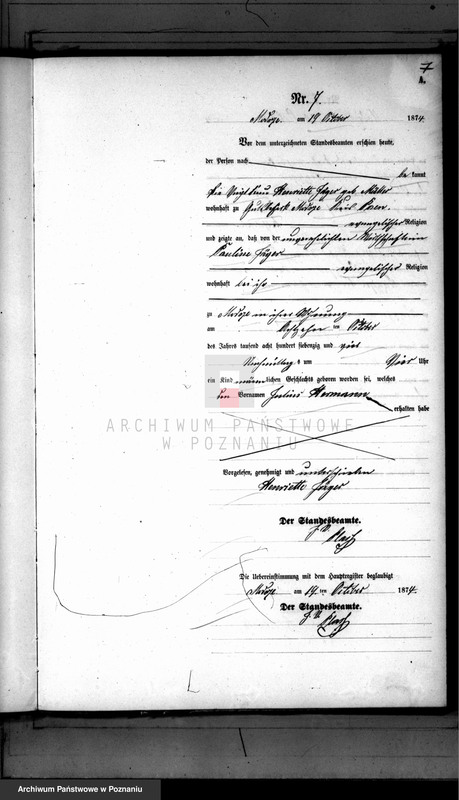 7
A.
Nr. 7.
am 19 October 1874.
Vor dem unterzeichneten Standesbeamten erschien heute,
der Person nach
be kannt
die Henriette Jäger geb.
wohnhaft zu Posen
evangelischer Religion
und zeigte an, daß von der unverehelichten
Pauline Jäger
evangelischer Religion
wohnhaft bei ihr
zu in ihrer Wohnung
am ten October
des Jahres tausend acht hundert siebenzig und vier
Nachmittags um Vier Uhr
ein Kind männlichen Geschlechts geboren worden sei, welches
den Vornamen Julius Hermann
erhalten habe
ARCHIWUM PAŃSTWOWE
W POZNANIU
Vorgelesen, genehmigt und unterschrieben
Henriette Jäger
Der Standesbeamte.
Die Uebereinstimmung mit dem Hauptregister beglaubigt
am 19 ten October 1874.
Der Standesbeamte.
Archiwum Państwowe w Poznaniu